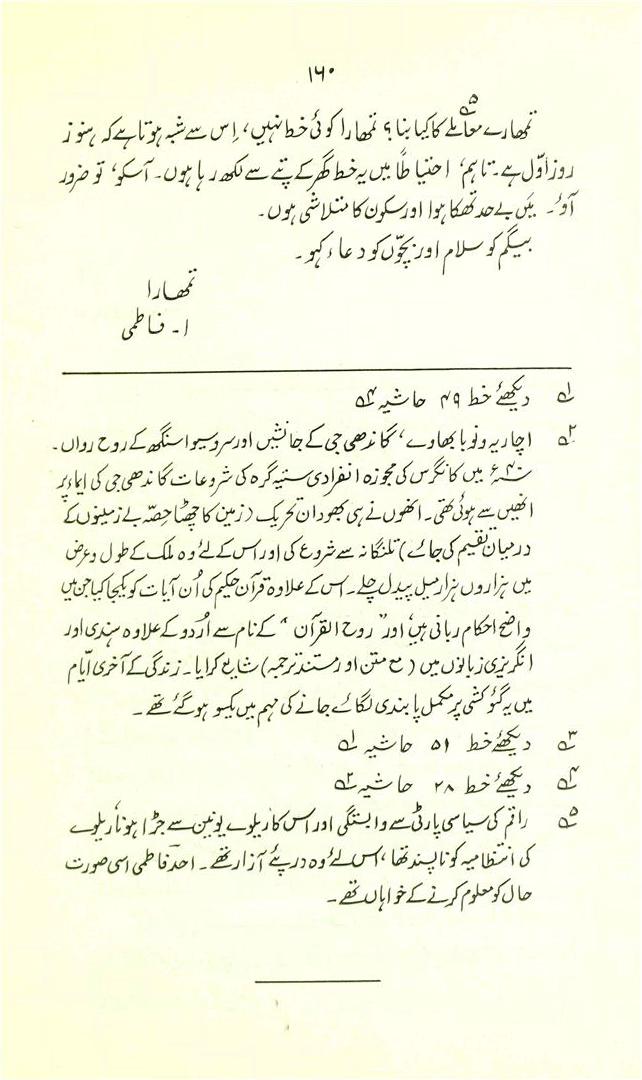 ۱۶۰
تمھارے معاملے۵ کا کیا بنا؟ تمھارا کوئی خط نہیں، اِس سے شبہ ہوتا ہے کہ ہنوز
روزِ اوّل ہے۔ تاہم، احتیاطاً میں یہ خط گھر کے پتے سے لکھ رہا ہوں۔ آسکو، تو ضرور
آؤ۔ میَں بے حد تھکا ہوا اور سکون کا متلاشی ہوں۔
بیگم کو سلام اور بچّوں کو دعاء کہو۔
تمھارا
ا۔ فاطمی
۱ دیکھئے خط ۴۹ حاشیہ ۴
۲ اچاریہ ونوبا بھاوے، گاندھی جی کے جانشیں اور سروسیوا سنگھ کے روح رواں۔
۴۰ء میں کانگرس کی مجوزہ انفرادی ستیہ گرہ کی شروعات گاندھی جی کی ایماء پر
انھیں سے ہوئی تھی۔ انھوں نے ہی بھودان تحریک (زمین کا چھٹا حِصّہ بے زمینوں کے
درمیان تقیم کی جائے) تلنگانہ سے شروع کی اور اس کے لئے وہ ملک کے طول و عرض
میں ہزاروں ہزار میل پیدل چلے۔ اس کے علاوہ قرآن حکیم کی اُن آیات کو یکجا کیا جن میں
واضح احکام ربانی ہیں اور "روح القرآن" کے نام سے اُردو کے علاوہ ہندی اور
انگریزی زبانوں میں (مع متن اور مستند ترجمہ) شایع کرایا۔ زندگی کے آخری ایّام
میں یہ گئوکشی پر مکمل پابندی لگائے جانے کی مہم میں یکسو ہوگئے تھے۔
۳ دیکھئے خط ۵۱ حاشیہ ۱
۴ دیکھئے خط ۲۸ حاشیہ ۲
۵ راقم کی سیاسی پارٹی سے وابستگی اور اس کا ریلوے یونین سے جڑا ہونا، ریلوے
کی انتظامیہ کو ناپسند تھا، اس لئے وہ درپئے آزار تھے۔ احمد فاطمی اسی صورت
حال کو معلوم کرنے کے خواہاں تھے۔